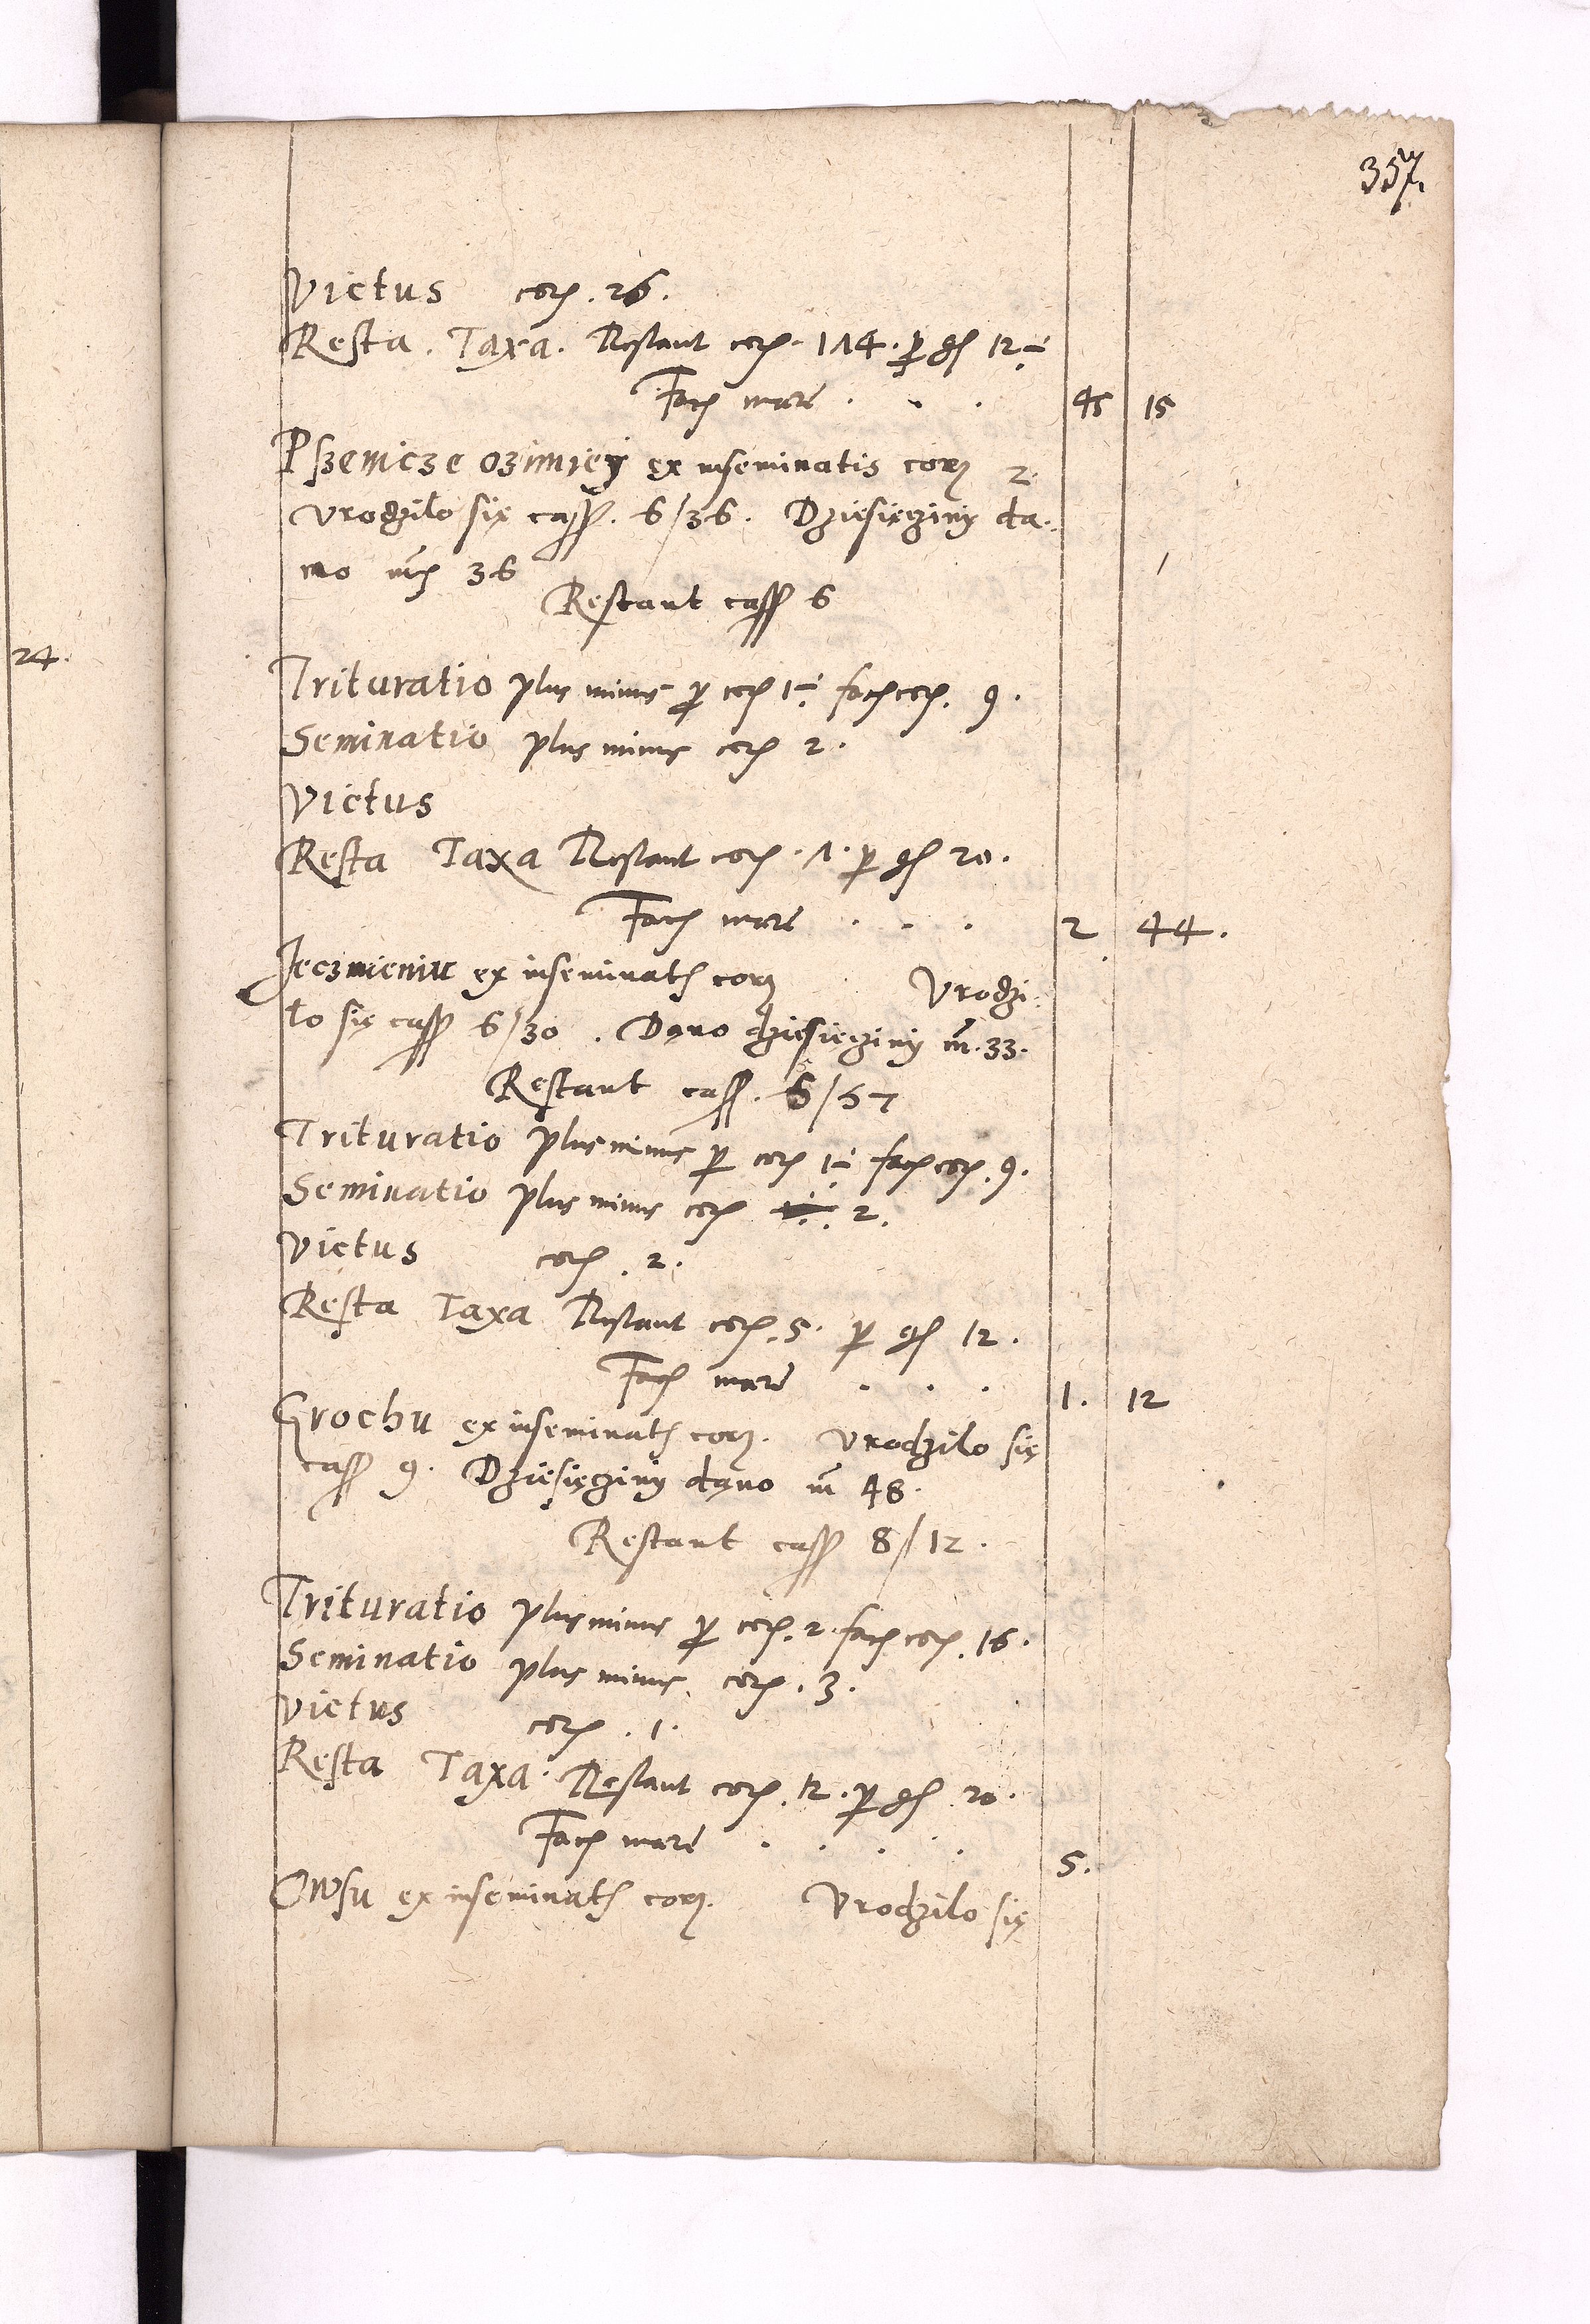 357.
24.
Victus cor. 26.
Resta. Taxa. Restant cor. 174. p gs 12 ÷
Fac mare . . . 45 15
Pszenicze ozimiey ex inseminatis cor 2.
Vrodzilo się capp. 6/36. Dziesięciny da-
no m 36
Restant capp 6
Trituratio plus minus p cor 1 ÷ fac cor. 9.
Seminatio plus minus cor 2.
Victus
Resta Taxa Restant cor. 7. p gs 20.
Fac mare . . . 2 44.
Jeczmieniu ex inseminat cor Vrodzi-
lo się capp 6/30. Dano dziesięciny m. 33.
Restant capp. 5/57
Trituratio plus minus p cor 1 ÷ fac cor. 9.
Seminatio plus minus cor 2.
Victus cor. 2.
Resta Taxa Restant cor. 5. p gs 12.
Fac mare . . . 1. 12
Grochu ex inseminat cor. Vrodzilo się
capp 9. Dziesięciny dano m 48.
Restant capp 8/12.
Trituratio plus minus p cor. 2. fac cor. 16.
Seminatio plus minus cor. 3.
Victus cor. 1.
Resta Taxa. Restant cor. 12. p gs 20.
Fac mare . . . . 5.
Owsu ex inseminat cor. Vrodzilo się